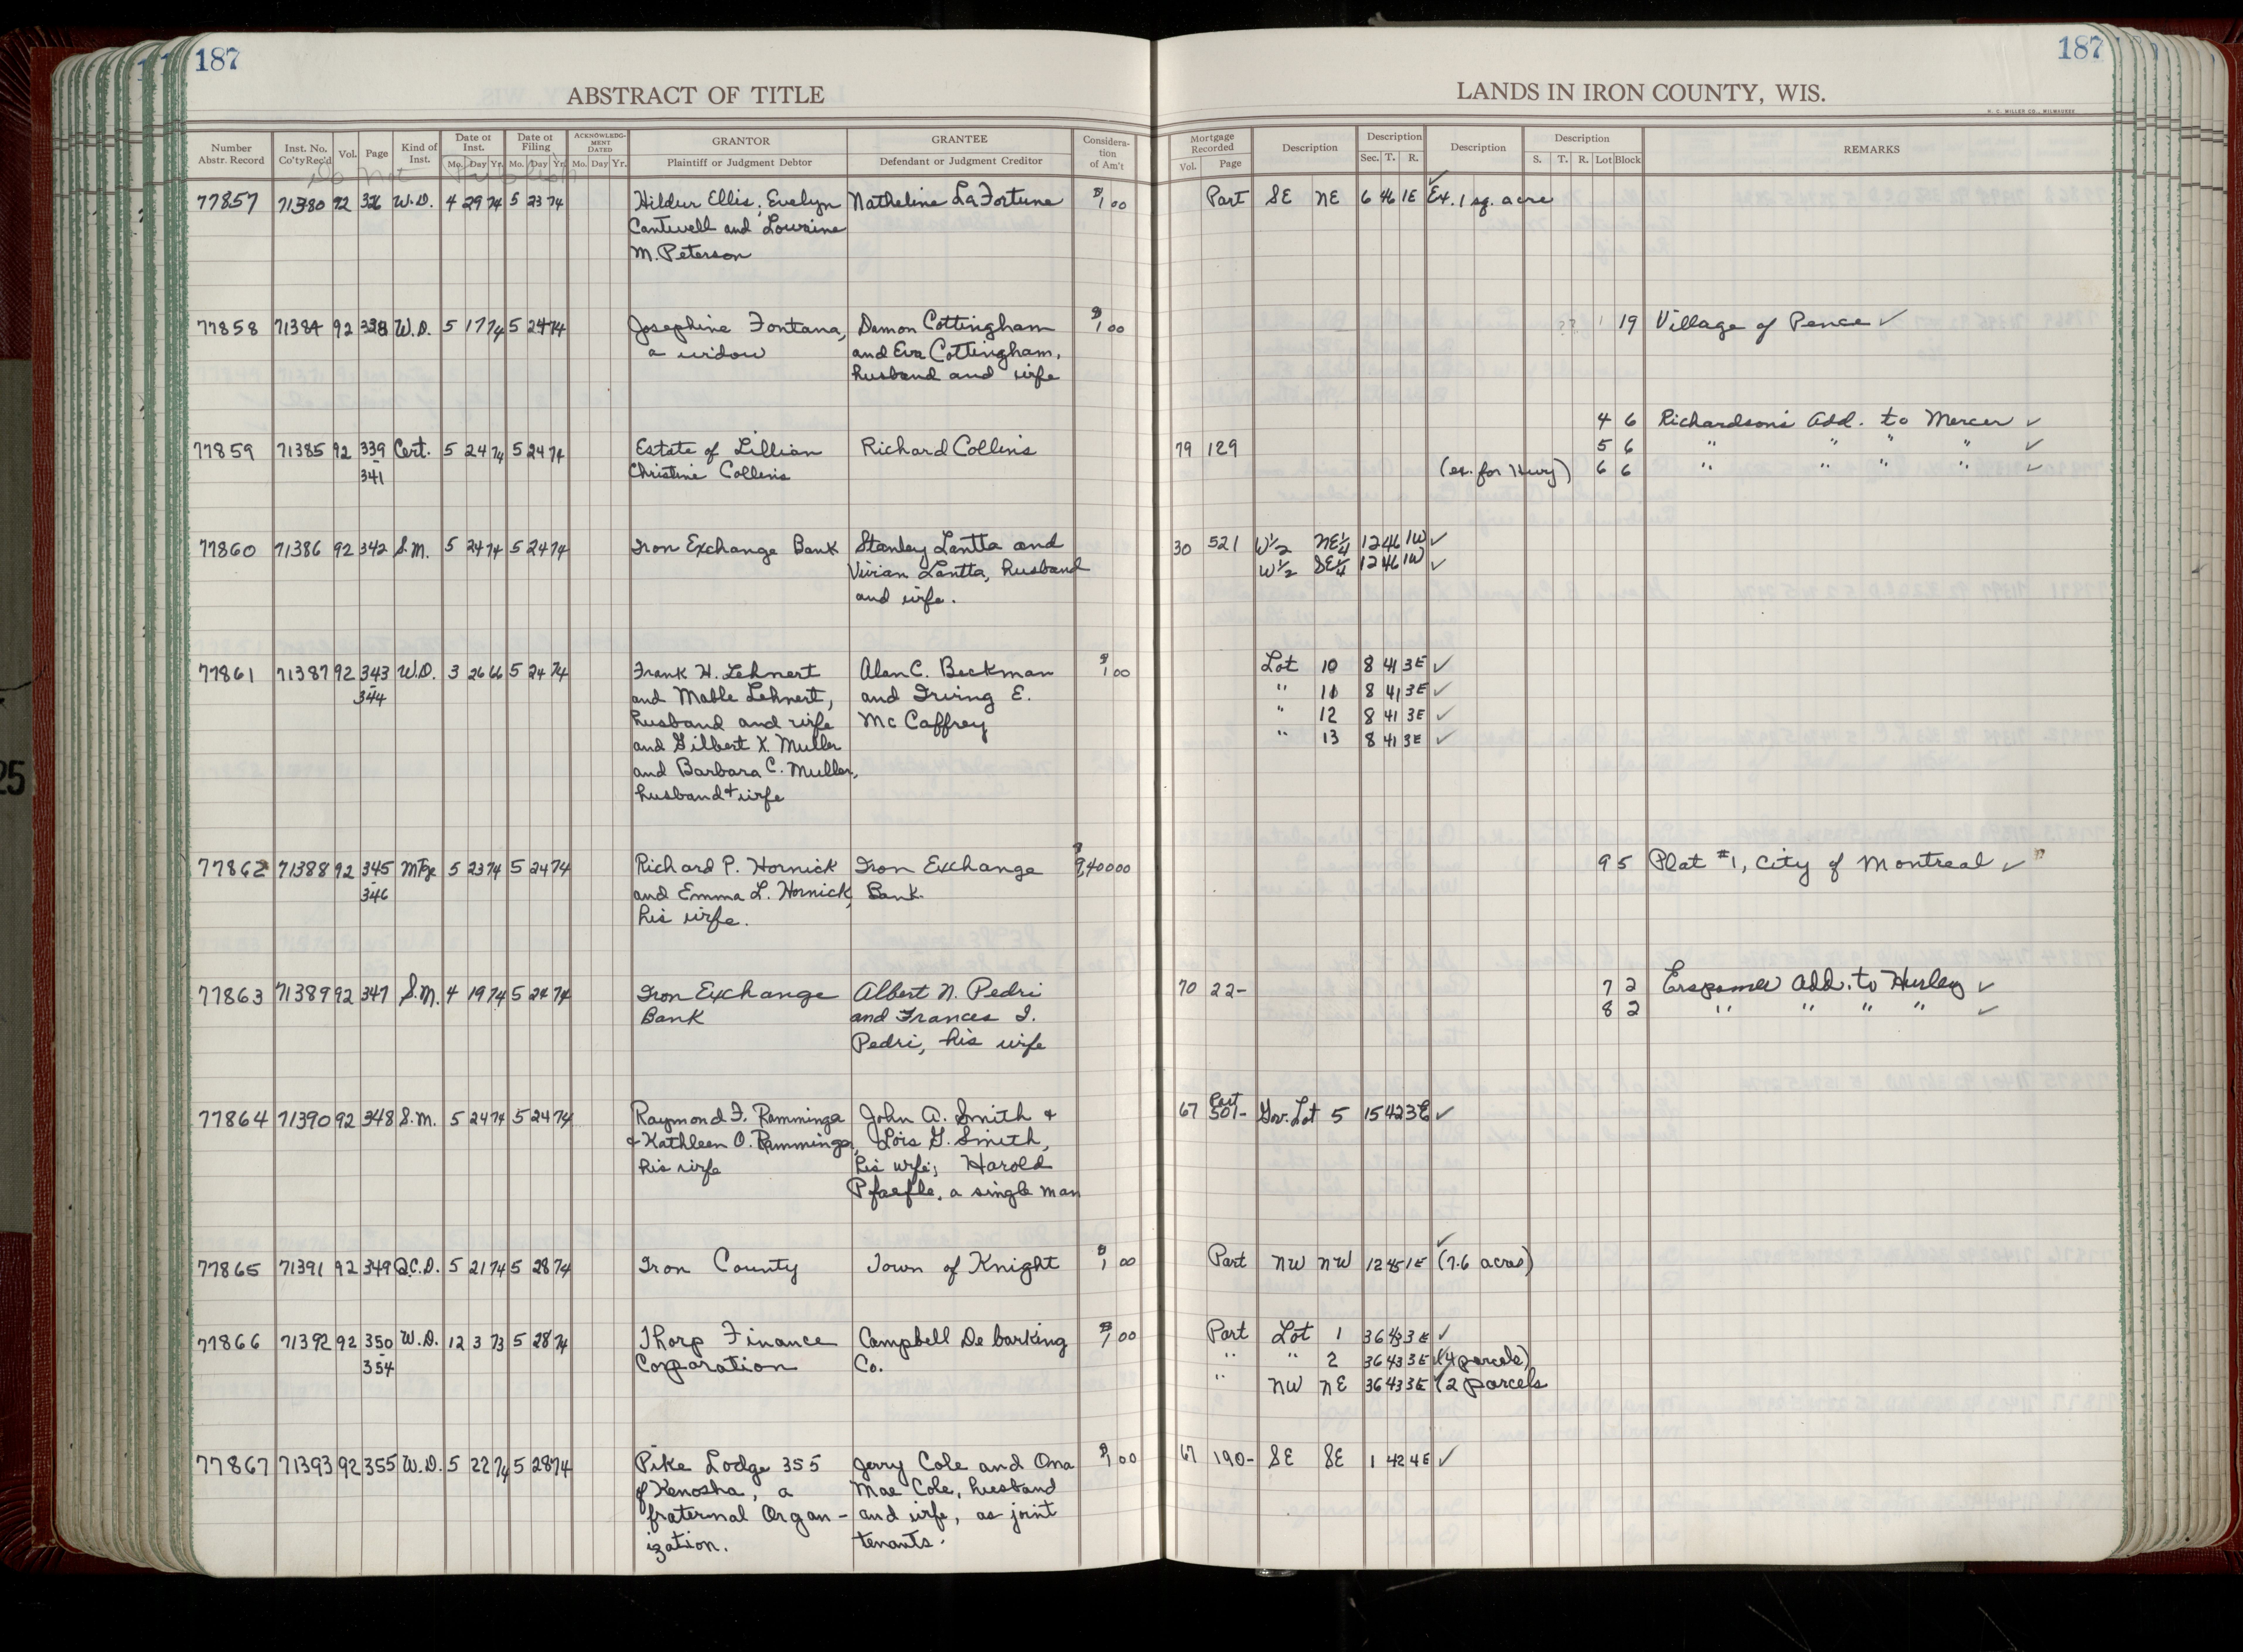 187
187
ABSTRACT OF TITLE
LANDS IN IRON COUNTY, WIS.
H. C. MILLER CO., MILWAUKEE
Number Abstr. Record | Inst. No. Co'ty Rec'd | Vol. | Page | Kind of Inst. | Date of Inst. Mo. Day Yr. | Date of Filing Mo. Day Yr. | ACKNOWLEDGMENT DATED Mo. Day Yr. | GRANTOR Plaintiff or Judgment Debtor | GRANTEE Defendant or Judgment Creditor | Consideration of Am't | Mortgage Recorded Vol. Page | Description | Description Sec. T. R. | Description | Description S. T. R. Lot Block | REMARKS
Do Not Publish
77857 71380 92 326 W.D. 4 29 74 5 23 74 Hildur Ellis; Evelyn Natheline LaFortune $1 00 Part SE NE 6 46 1E Ex. 1 sq. acre
Cantwell and Lorraine
M. Peterson
77858 71384 92 338 W.D. 5 17 74 5 24 74 Josephine Fontana, Damon Cottingham $1 00 19 Village of Pence ✓
a widow and Eva Cottingham,
husband and wife
4 6 Richardson's Add. to Mercer ✓
77859 71385 92 339 Cert. 5 24 74 5 24 74 Estate of Lillian Richard Collins 79 129 5 6 " " " " ✓
- 341 Christine Collins (ex. for Hwy) 6 6 " " " " ✓
77860 71386 92 342 S.M. 5 24 74 5 24 74 Iron Exchange Bank Stanley Lantta and 30 521 W½ NE¼ 12 46 1W ✓
Vivian Lantta, husband W½ SE¼ 12 46 1W ✓
and wife.
77861 71387 92 343 W.D. 3 26 66 5 24 74 Frank H. Lehnert Alan C. Beckman $1 00 Lot 10 8 41 3E ✓
- 344 and Mable Lehnert, and Irving E. " 11 8 41 3E ✓
husband and wife McCaffrey " 12 8 41 3E ✓
and Gilbert K. Muller " 13 8 41 3E ✓
and Barbara C. Muller,
husband + wife
77862 71388 92 345 Mtge 5 23 74 5 24 74 Richard P. Hornick Iron Exchange $9,400 00 9 5 Plat #1, City of Montreal ✓
- 346 and Emma L. Hornick, Bank.
his wife.
77863 71389 92 347 S.M. 4 19 74 5 24 74 Iron Exchange Albert N. Pedri 70 22- 7 2 Erspamer Add. to Hurley ✓
Bank and Frances I. 8 2 " " " " ✓
Pedri, his wife
77864 71390 92 348 S.M. 5 24 74 5 24 74 Raymond F. Remminga John A. Smith + 67 Part 501- Gov. Lot 5 15 42 3E ✓
+ Kathleen O. Remminga, Lois G. Smith,
his wife his wife; Harold
Pfaefle, a single man
77865 71391 92 349 Q.C.D. 5 21 74 5 28 74 Iron County Town of Knight $1 00 Part NW NW 12 45 1E (7.6 acres) ✓
77866 71392 92 350 W.D. 12 3 73 5 28 74 Thorp Finance Campbell Debarking $1 00 Part Lot 1 36 43 3E ✓
- 354 Corporation Co. " " 2 36 43 3E ✓ (4 parcels)
" NW NE 36 43 3E ✓ (2 parcels
77867 71393 92 355 W.D. 5 22 74 5 28 74 Pike Lodge 355 Jerry Cole and Ona $1 00 67 190- SE SE 1 42 4E ✓
of Kenosha, a Mae Cole, husband
fraternal Organ- and wife, as joint
ization. tenants.